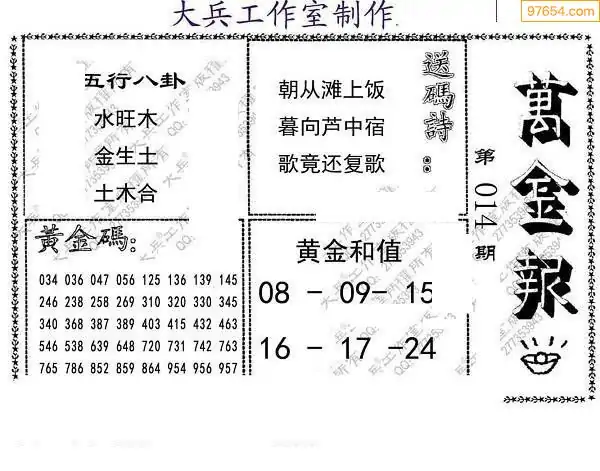 大兵工作室制作
97654.com
萬金報
第014期
送碼詩：
朝从滩上饭
暮向芦中宿
歌竟还复歌
五行八卦
水旺木
金生土
土木合
黃金碼：
034 036 047 056 125 136 139 145
246 238 258 269 310 320 330 345
340 368 387 389 403 415 432 463
546 538 639 648 720 731 742 763
765 786 852 859 864 954 956 957
黄金和值
08 - 09- 15
16 - 17 -24